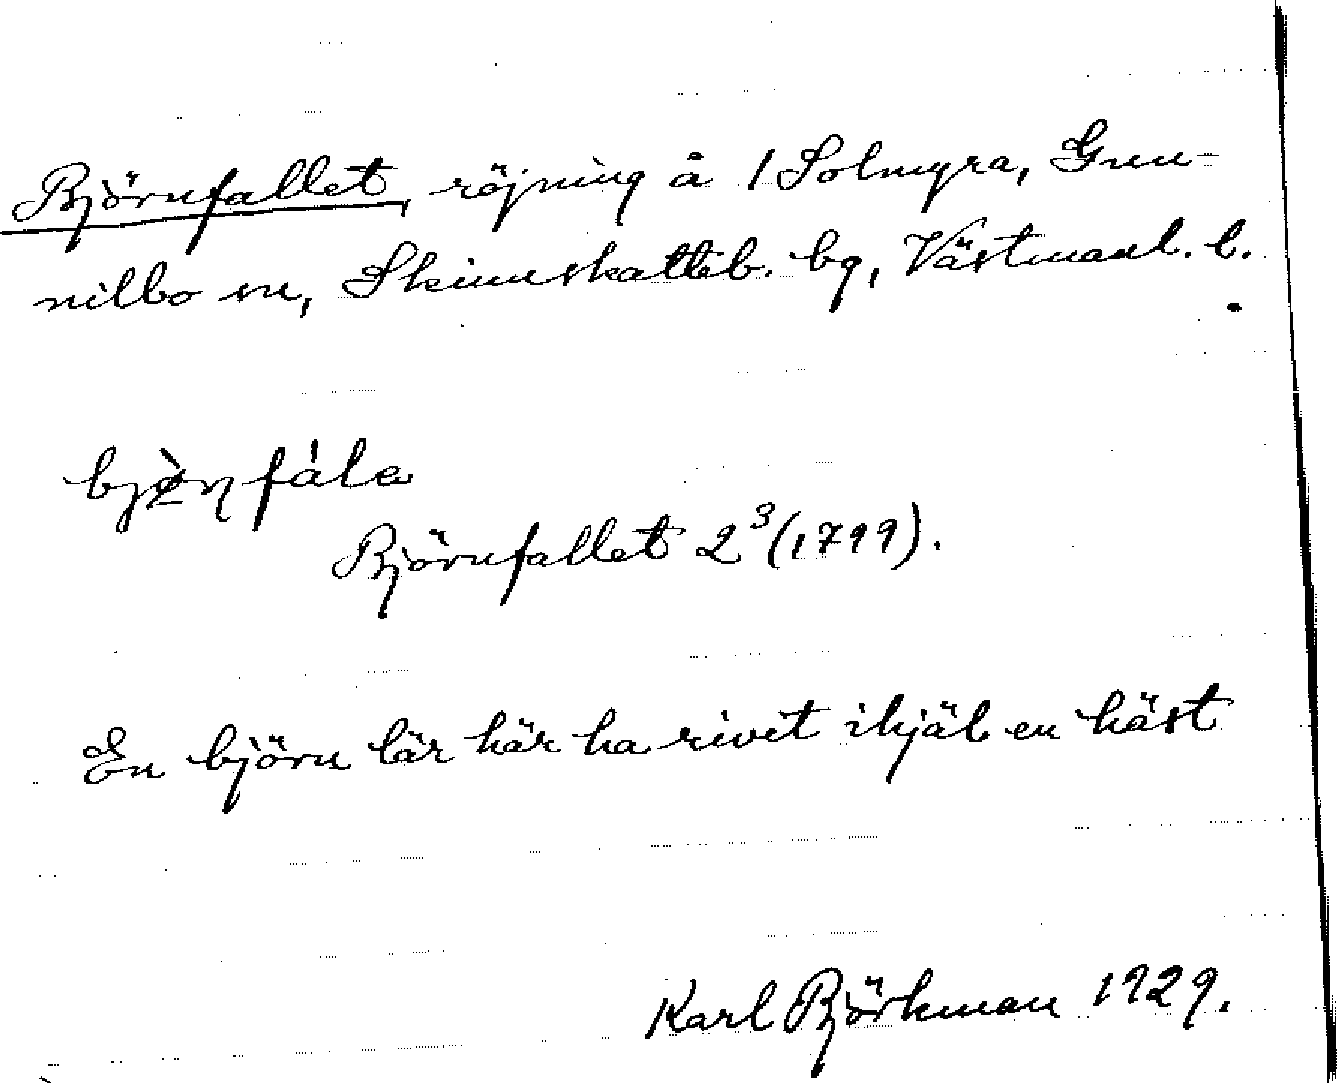 Björnfallet, röjning å 1 Solmyra, Gun-
nilbo sn, Skinnskatteb. bg, Västmanl. l.
Björnfallet 2³ (1799).
En björn lär här ha rivit ihjäl en häst
Karl Björkman 1929.